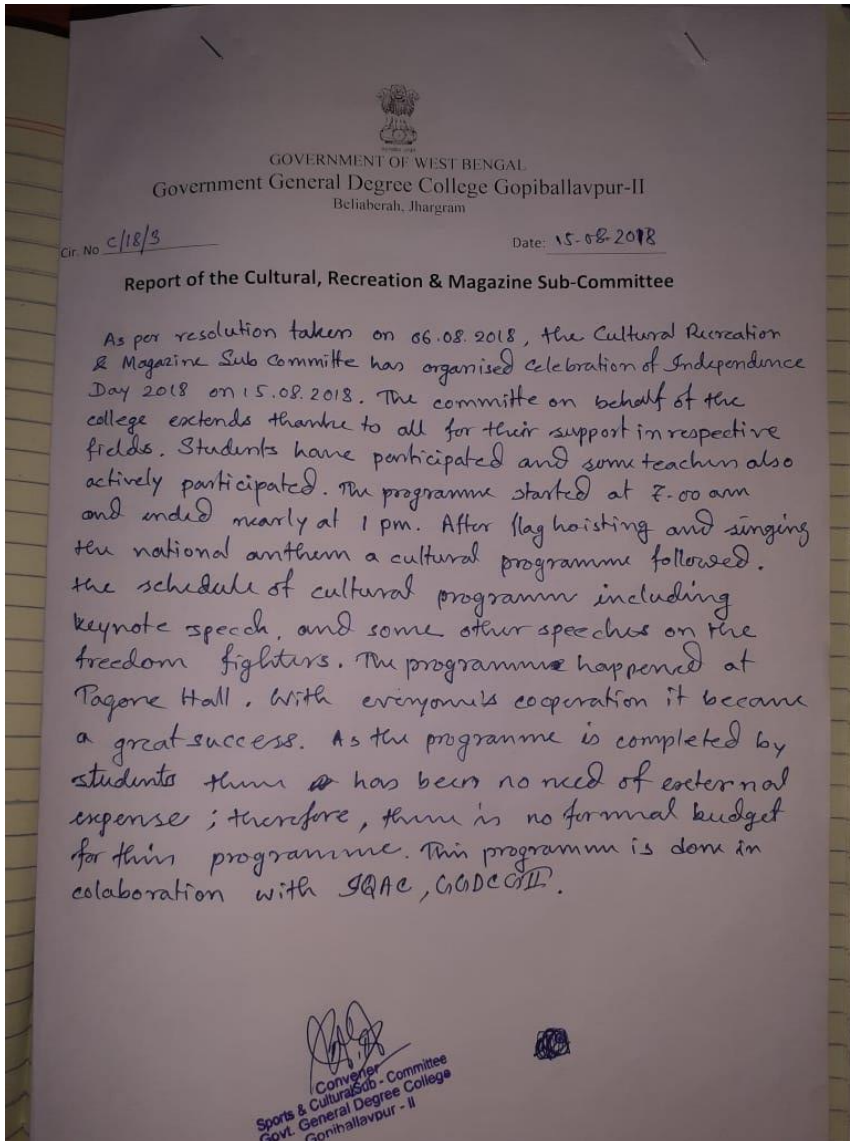 GOVERNMENT OF WEST BENGAL
Government General Degree College Gopiballavpur-II
Beliaberah, Jhargram
Cir. No C/18/3
Date: 15-08-2018
Report of the Cultural, Recreation & Magazine Sub-Committee
As per resolution taken on 06.08.2018, the Cultural Recreation
& Magazine Sub Committe has organised celebration of Independence
Day 2018 on 15.08.2018. The committe on behalf of the
college extends thanks to all for their support in respective
fields. Students have participated and some teachers also
actively participated. The programme started at 7.00 am
and ended nearly at 1 pm. After flag hoisting and singing
the national anthem a cultural programme followed.
the schedule of cultural programm including
keynote speech, and some other speeches on the
freedom fighters. The programme happened at
Tagore Hall. With everyone's cooperation it became
a great success. As the programme is completed by
students there has been no need of external
expense; therefore, there is no formal budget
for this programme. This programm is done in
colaboration with IQAC, GGDCGII.
Convener
Sports & Cultural Sub - Committee
Govt. General Degree College
Gopiballavpur - II